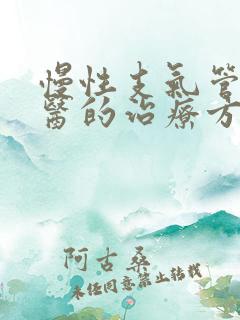 慢性支氣管
醫的治療方
阿古桑
未經同意禁止轉載